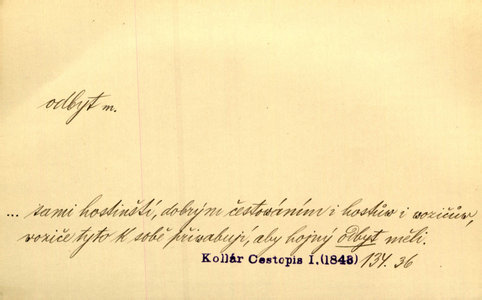 odbyt m.
... sami hostinští, dobrým čestowáním i hostůw i wozičůw,
woziče tyto k sobě přiwabují, aby hojný odbyt měli.
Kollár Cestopis I. (1843) 134. 36